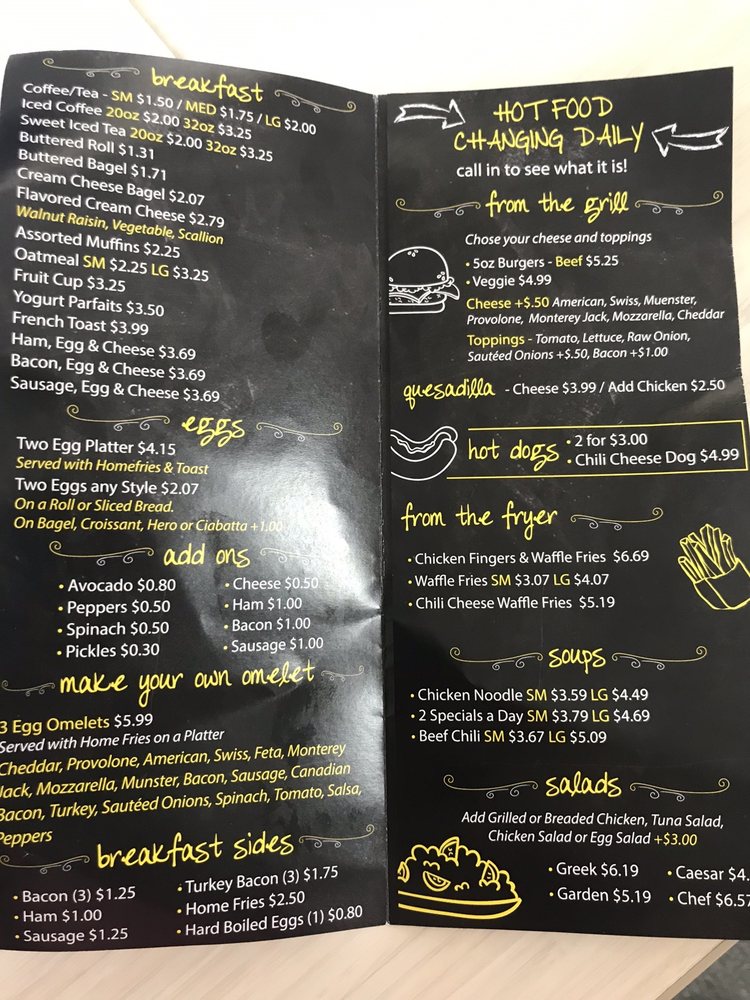 breakfast
Coffee/Tea - SM $1.50 / MED $1.75 / LG $2.00
Iced Coffee 20oz $2.00 32oz $3.25
Sweet Iced Tea 20oz $2.00 32oz $3.25
Buttered Roll $1.31
Buttered Bagel $1.71
Cream Cheese Bagel $2.07
Flavored Cream Cheese $2.79
Walnut Raisin, Vegetable, Scallion
Assorted Muffins $2.25
Oatmeal SM $2.25 LG $3.25
Fruit Cup $3.25
Yogurt Parfaits $3.50
French Toast $3.99
Ham, Egg & Cheese $3.69
Bacon, Egg & Cheese $3.69
Sausage, Egg & Cheese $3.69
eggs
Two Egg Platter $4.15
Served with Homefries & Toast
Two Eggs any Style $2.07
On a Roll or Sliced Bread.
On Bagel, Croissant, Hero or Ciabatta +1.00
add ons
• Avocado $0.80
• Peppers $0.50
• Spinach $0.50
• Pickles $0.30
• Cheese $0.50
• Ham $1.00
• Bacon $1.00
• Sausage $1.00
make your own omelet
3 Egg Omelets $5.99
Served with Home Fries on a Platter
Cheddar, Provolone, American, Swiss, Feta, Monterey
Jack, Mozzarella, Munster, Bacon, Sausage, Canadian
Bacon, Turkey, Sautéed Onions, Spinach, Tomato, Salsa,
Peppers
breakfast sides
• Bacon (3) $1.25
• Ham $1.00
• Sausage $1.25
• Turkey Bacon (3) $1.75
• Home Fries $2.50
• Hard Boiled Eggs (1) $0.80
HOT FOOD
CHANGING DAILY
call in to see what it is!
from the grill
Chose your cheese and toppings
• 5oz Burgers - Beef $5.25
• Veggie $4.99
Cheese +$.50 American, Swiss, Muenster,
Provolone, Monterey Jack, Mozzarella, Cheddar
Toppings - Tomato, Lettuce, Raw Onion,
Sautéed Onions +$.50, Bacon +$1.00
quesadilla - Cheese $3.99 / Add Chicken $2.50
hot dogs
• 2 for $3.00
• Chili Cheese Dog $4.99
from the fryer
• Chicken Fingers & Waffle Fries $6.69
• Waffle Fries SM $3.07 LG $4.07
• Chili Cheese Waffle Fries $5.19
soups
• Chicken Noodle SM $3.59 LG $4.49
• 2 Specials a Day SM $3.79 LG $4.69
• Beef Chili SM $3.67 LG $5.09
salads
Add Grilled or Breaded Chicken, Tuna Salad,
Chicken Salad or Egg Salad +$3.00
• Greek $6.19
• Garden $5.19
• Caesar $4.
• Chef $6.57